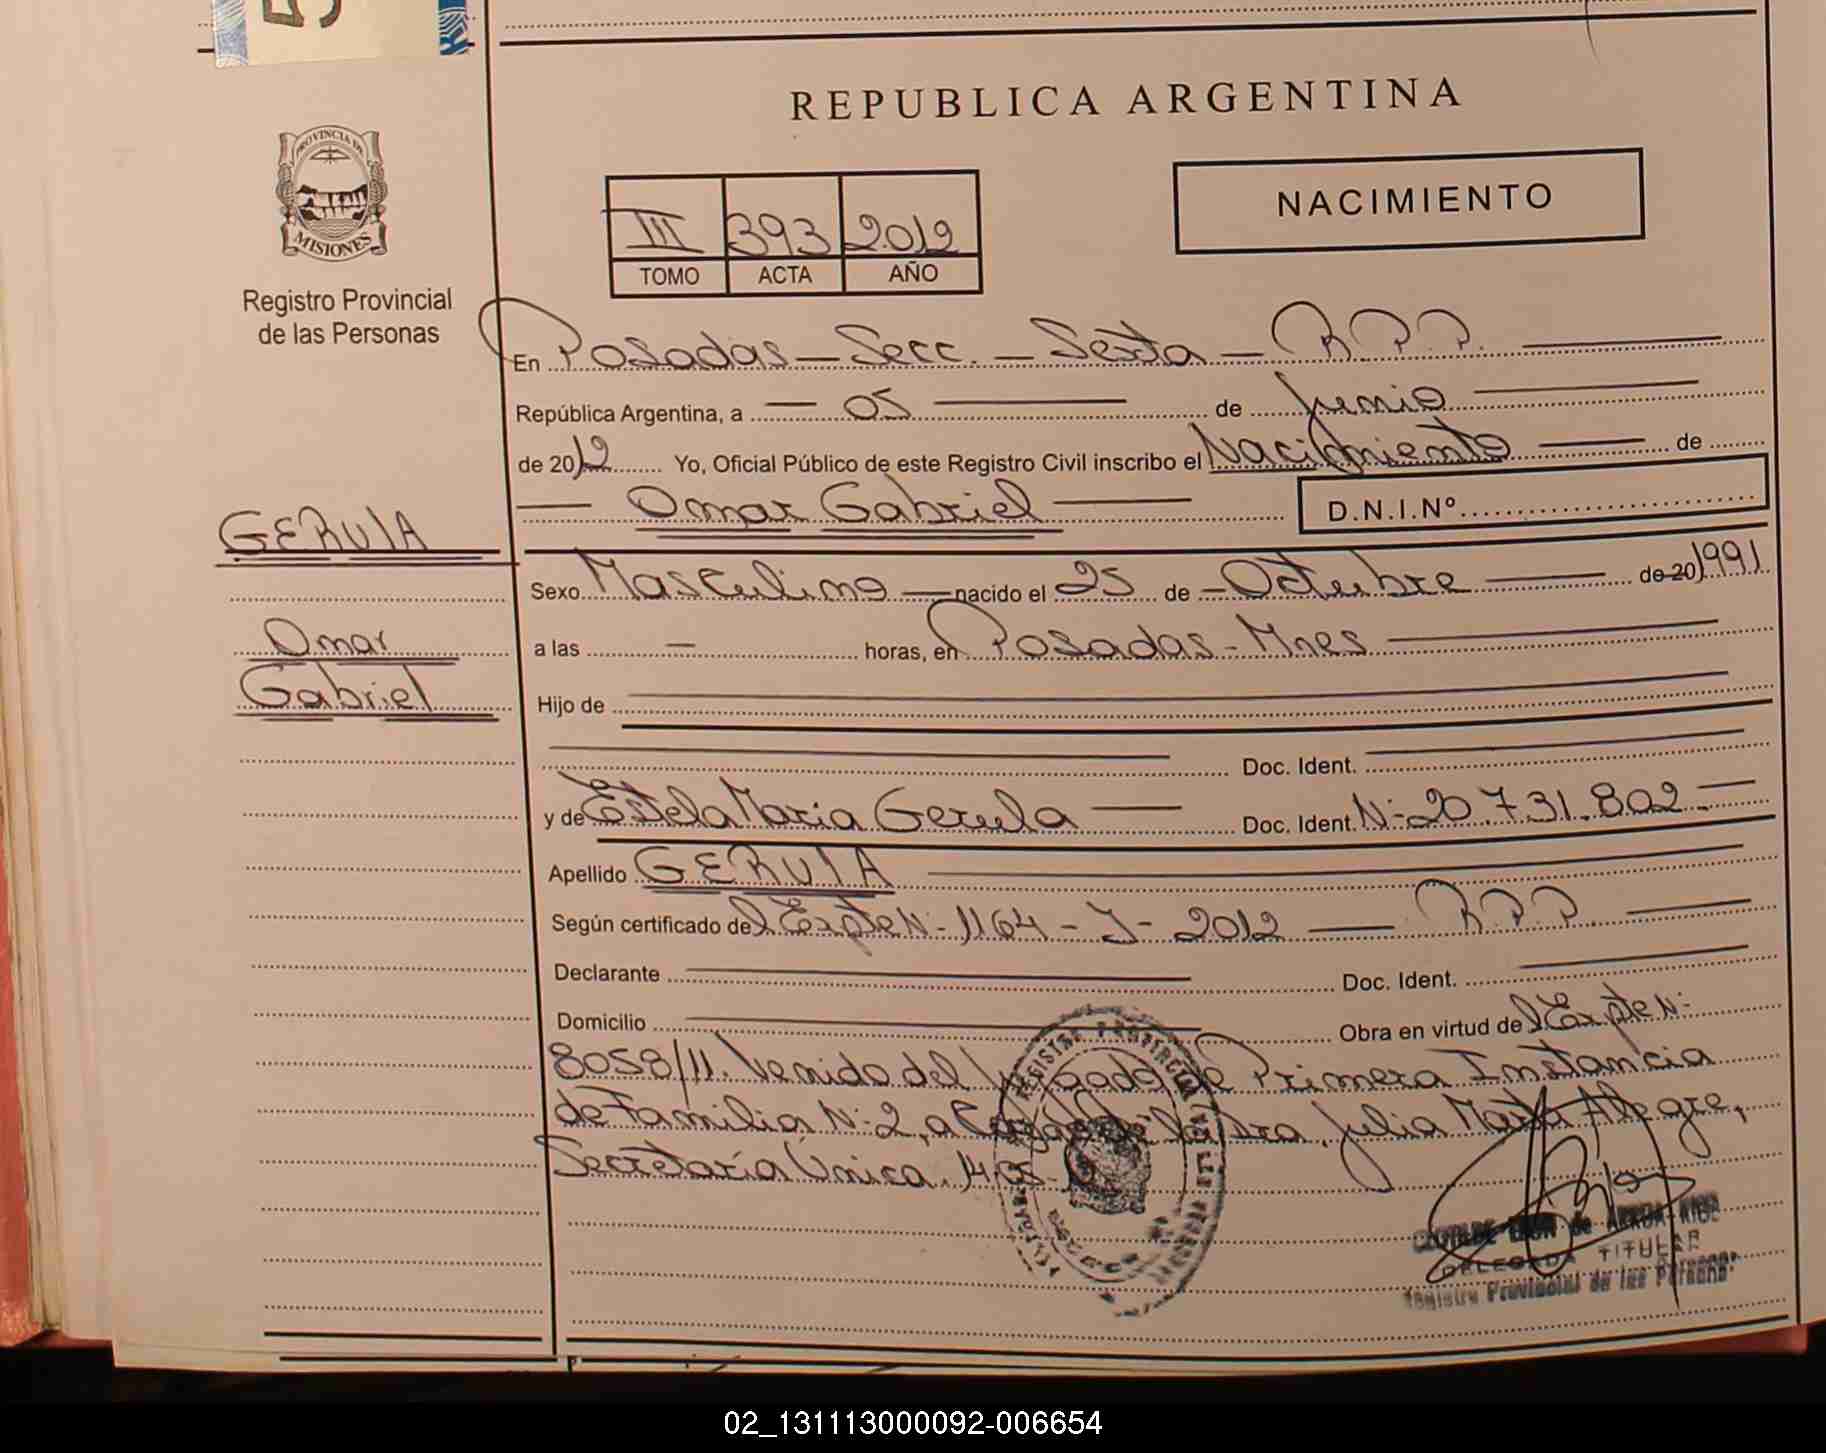 REPUBLICA ARGENTINA
NACIMIENTO
III 393 2012
TOMO ACTA AÑO
PROVINCIA DE
MISIONES
Registro Provincial
de las Personas
En Posadas - Secc. - Sexta - R.P.P.
República Argentina, a - 05 de Junio
de 2012 Yo, Oficial Público de este Registro Civil inscribo el Nacimiento de
Omar Gabriel D.N.I.Nº
GERULA
Omar
Gabriel
Sexo Masculino nacido el 25 de - Octubre de 20 1991
a las - horas, en Posadas - Mnes
Hijo de
Doc. Ident.
y de Estela Maria Gerula Doc. Ident. N: 20.731.802.-
Apellido GERULA
Según certificado del Expte N- 1164 - J - 2012 R.P.P.
Declarante Doc. Ident.
Domicilio Obra en virtud del Expte N:
8058/11. Venido del Juzgado de Primera Instancia
de Familia N:2, a Cargo de la Dra. Julia Marta Alegre,
Secretaría Única. 14-05-
DELEGADA TITULAR
Registro Provincial de las Personas
02_131113000092-006654